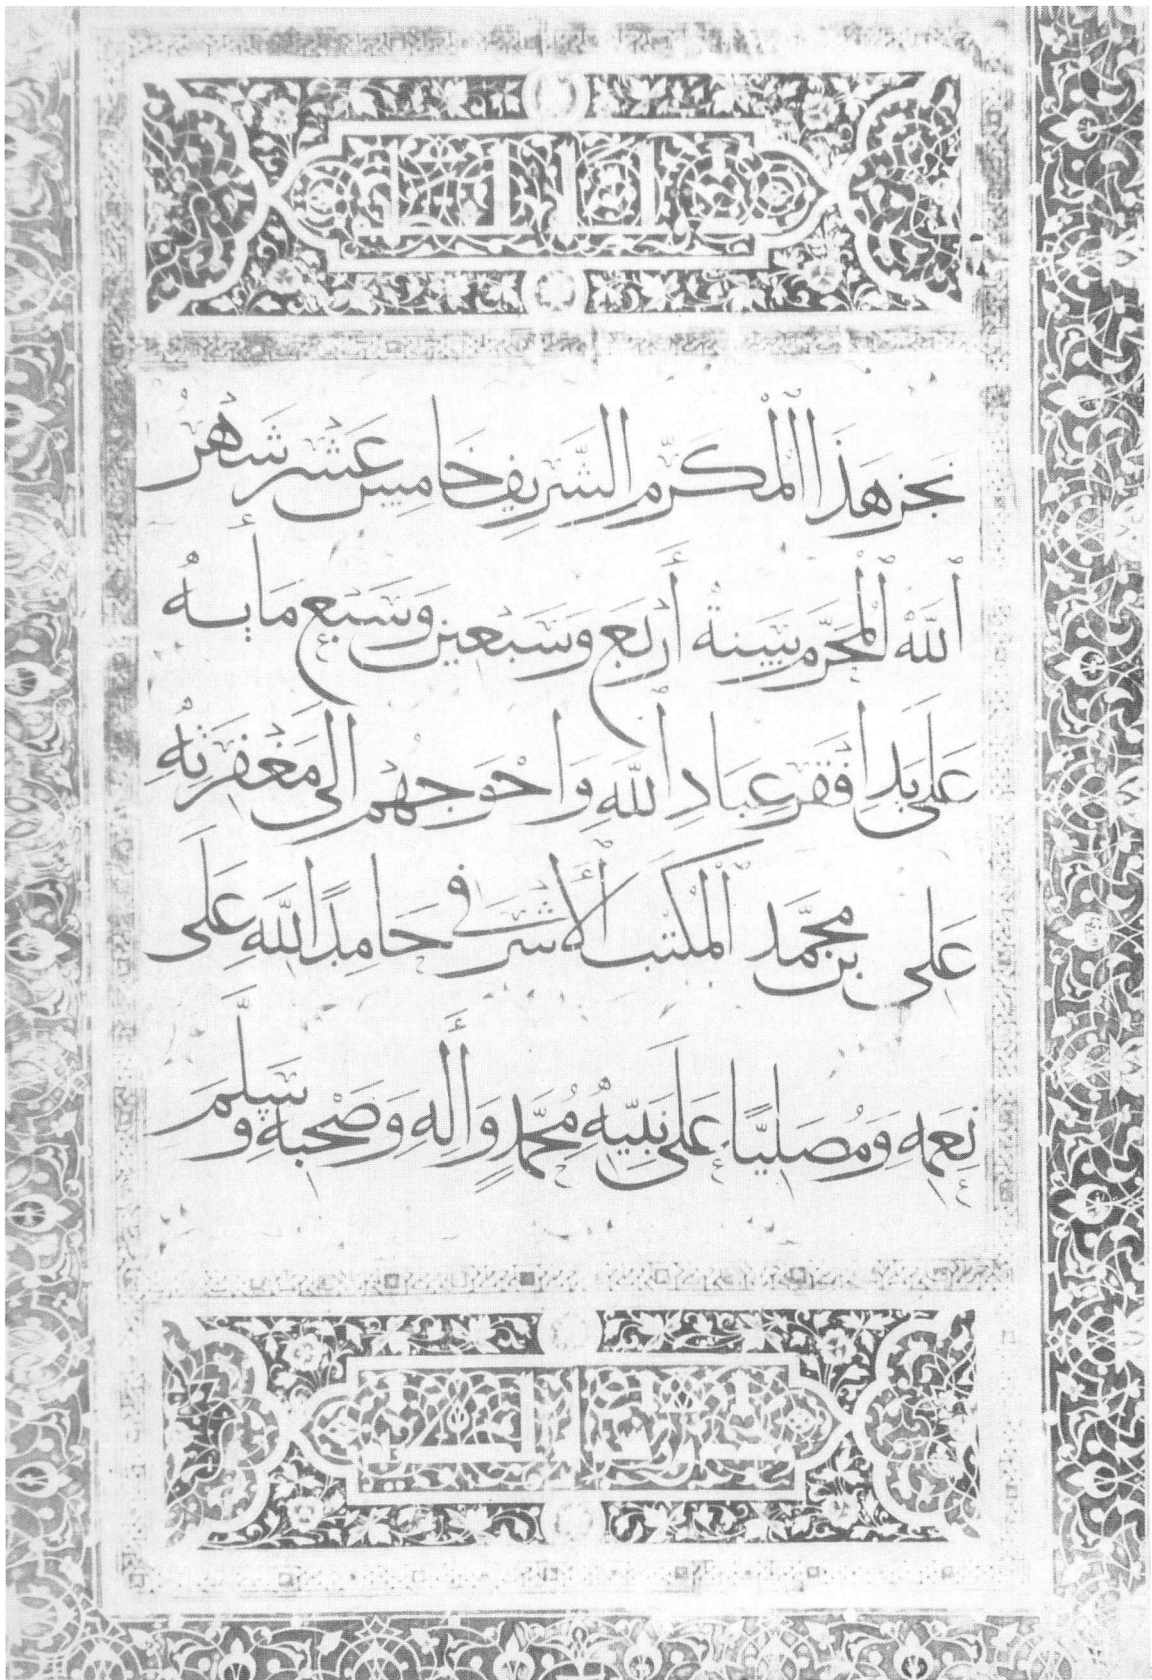 نجز هَذَا المكرم الشَّرِيف خَامِس عَشَر شَهر
ٱللَّه ٱلْمحَرَّم سَنة أَربَع وَسَبعين وَسَبع مَايه
عَلَى يَد افقَر عِبَادِ ٱللَّهِ وَاحْوَجهُم الَى مَغفِرَتِهُ
عَلى بن محَمَّد ٱلْمكتب ٱلْأَشرَفى حَامِدًا للَّهِ عَلَى
نِعَمِهِ وَمُصَلِيًّا عَلَى نَبيّهُ مُحَمَّدٍ وَاَلِهِ وَصَحْبِهِ وَسَلَّمَ